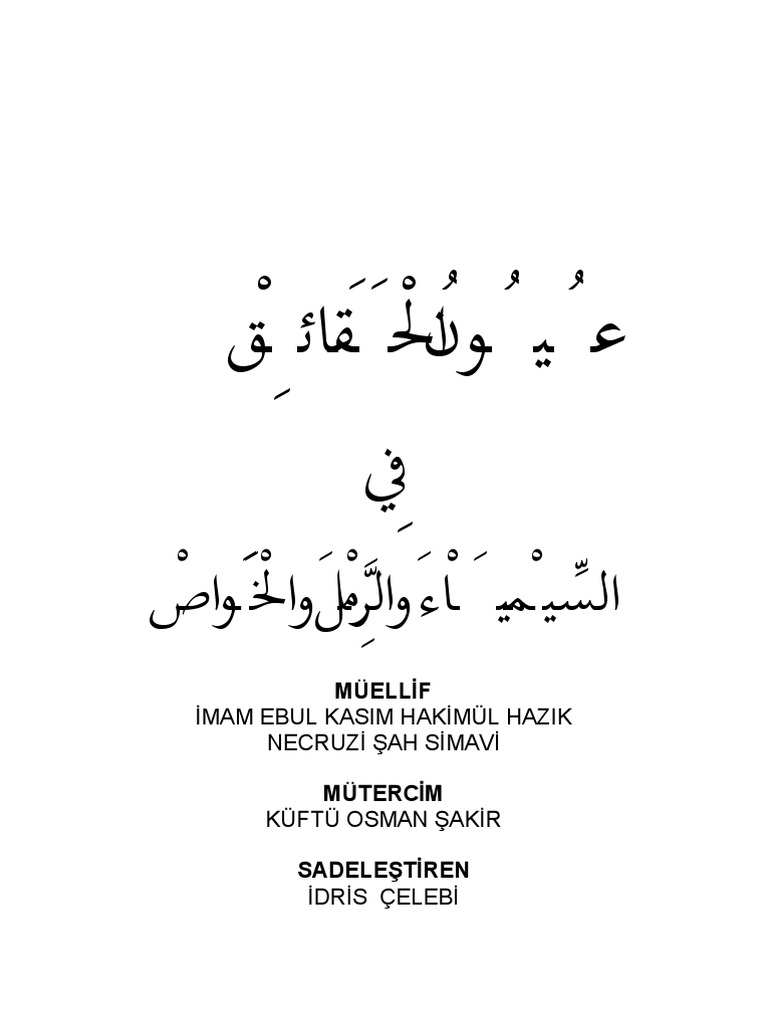 عُيُونُ الْحَقَائِقْ
فِي
السِّيْمِيَاْءَ وَالرَّمْلِ وَالْخَوَاصْ
MÜELLİF
İMAM EBUL KASIM HAKİMÜL HAZIK
NECRUZİ ŞAH SİMAVİ
MÜTERCİM
KÜFTÜ OSMAN ŞAKİR
SADELEŞTİREN
İDRİS ÇELEBİ